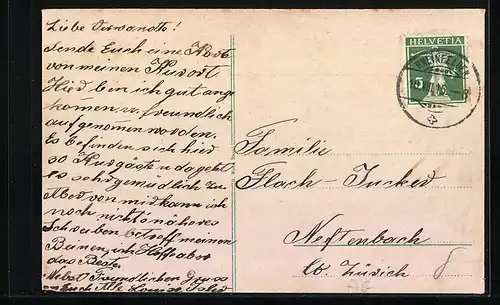 Liebe Verwandte!
Sende Euch eine Kart
von meinen Kurort
Hier bin ich gut ange
komen u. freundlich
aufgenomen worden.
Es befinden sich hier
30 Kurgäste u da geht
es sehr gemüdlich zu
Aber von mir kann ich
noch nichts näheres
Schreiben betreff meinen
Beinen, ich Hoffe aber
das Beste.
Nebst Freundlichen Gruss
an Euch Alle
HELVETIA
5
Familie
Flach-Tucker
Neftenbach
Ct. Zürich